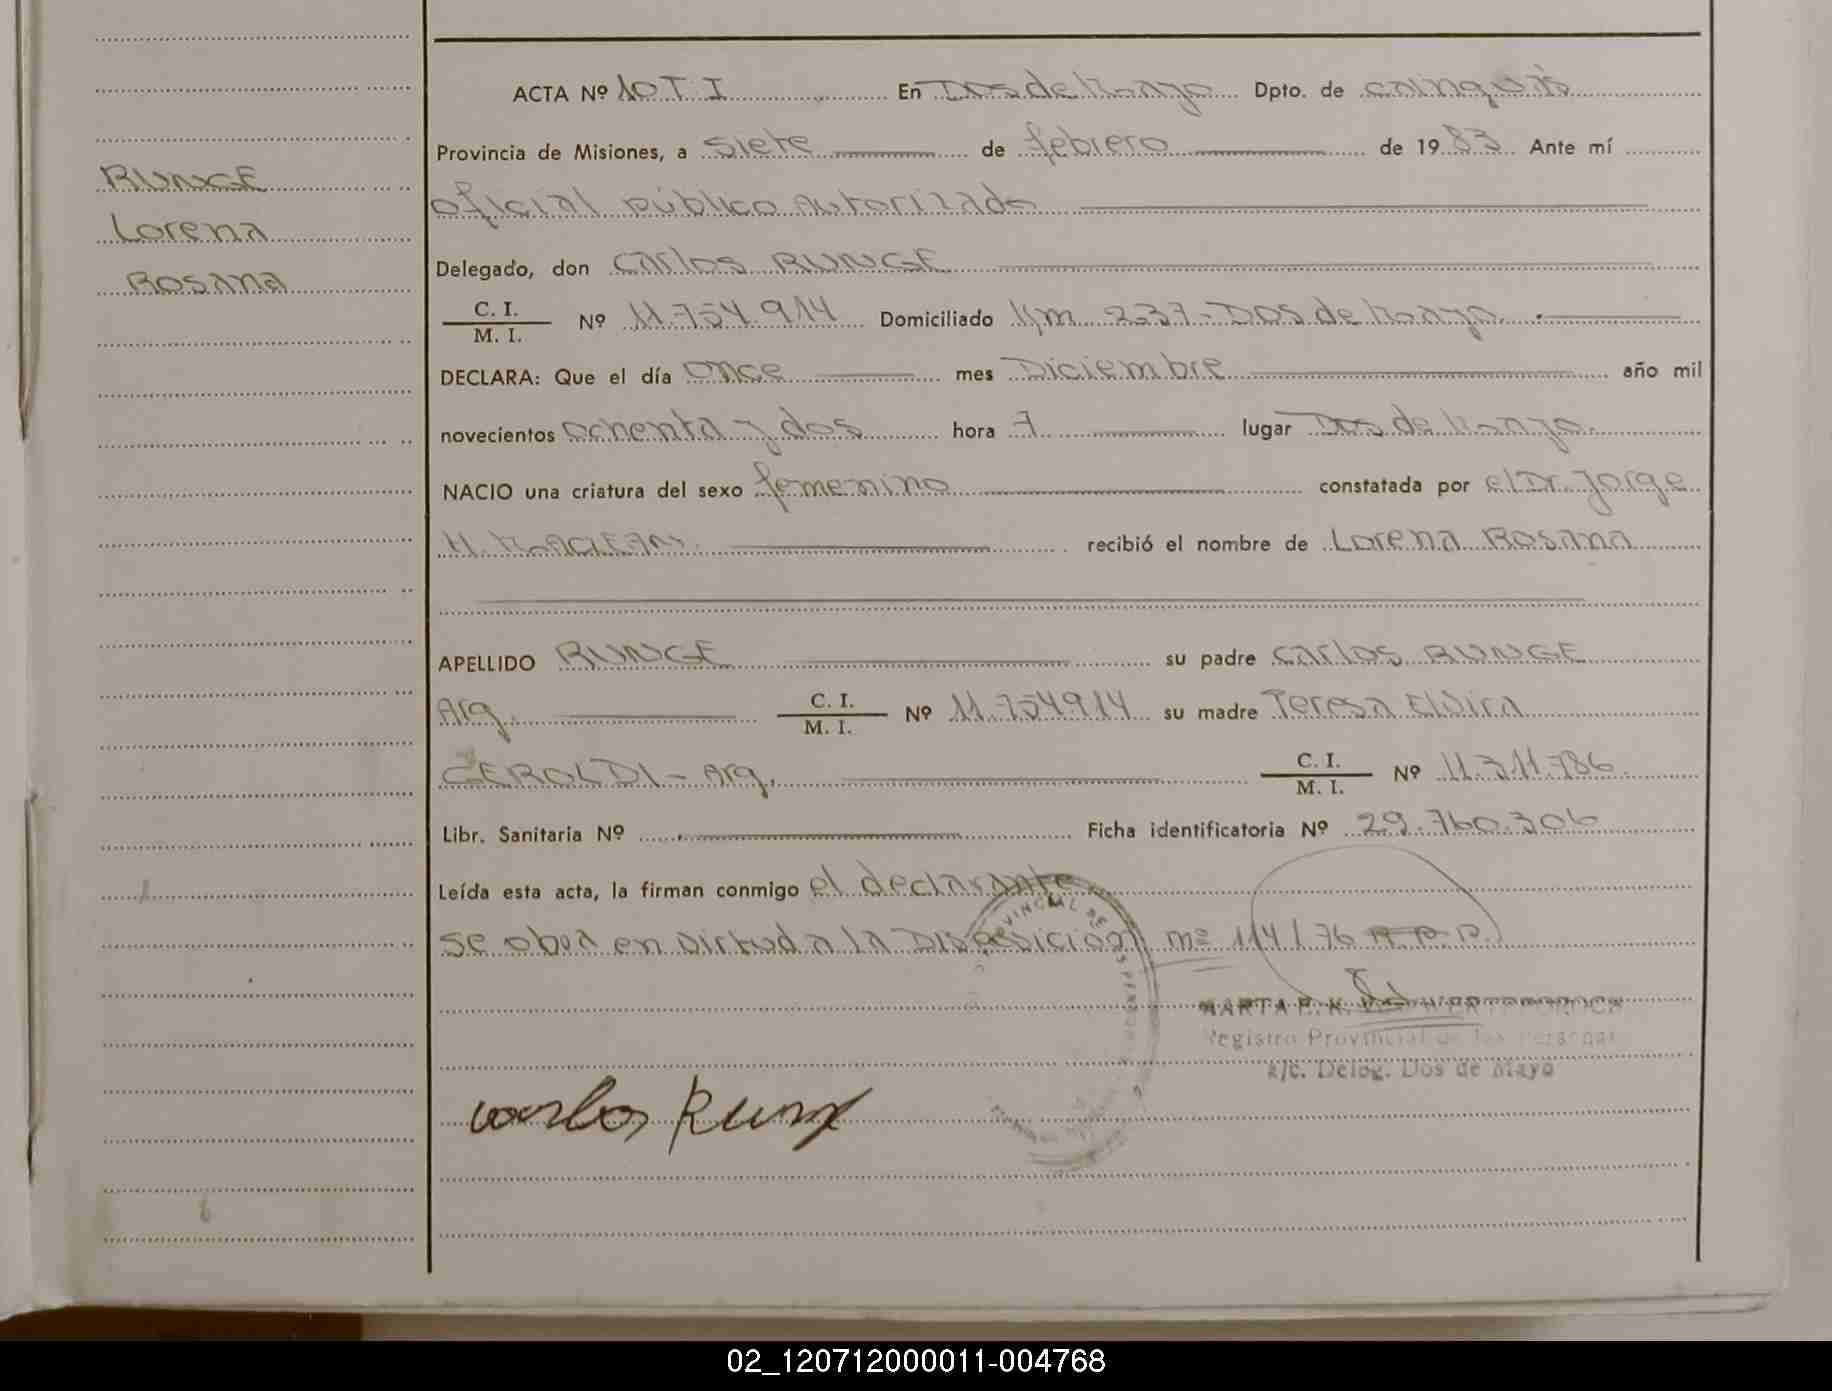 RUNGE
Lorena
Rosana
ACTA Nº 10 T I En Dos de Mayo Dpto. de Cainguás
Provincia de Misiones, a siete de febrero de 1983 Ante mí
oficial público Autorizado
Delegado, don Carlos RUNGE
C. I.
M. I. Nº 11.754.914 Domiciliado Km 237 - Dos de Mayo.
DECLARA: Que el día once mes Diciembre año mil
novecientos ochenta y dos hora 7 lugar Dos de Mayo.
NACIO una criatura del sexo femenino constatada por el Dr. Jorge
H. MACLEAN. recibió el nombre de Lorena Rosana
APELLIDO RUNGE su padre Carlos RUNGE
Arg. C. I.
M. I. Nº 11.754914 su madre Teresa Elvira
GEROLDI - Arg. C. I.
M. I. Nº 11.311.786.
Libr. Sanitaria Nº Ficha identificatoria Nº 29.760.306
Leída esta acta, la firman conmigo el declarante
se obra en virtud a la Disposición nº 114/76 R.P.P.
MARTA
Registro Provincial de las Personas
a/c. Deleg. Dos de Mayo
Carlos Runge
02_120712000011-004768